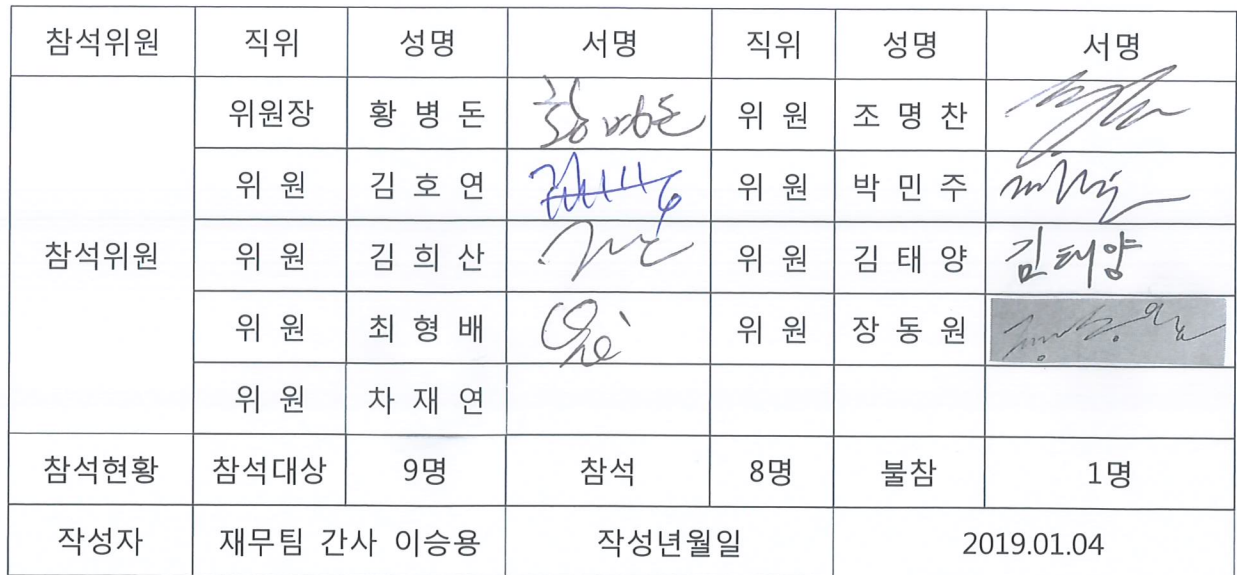 참석위원 직위 성명 서명 직위 성명 서명
위원장 황 병 돈 위 원 조 명 찬
위 원 김 호 연 위 원 박 민 주
참석위원 위 원 김 희 산 위 원 김 태 양 김태양
위 원 최 형 배 위 원 장 동 원
위 원 차 재 연
참석현황 참석대상 9명 참석 8명 불참 1명
작성자 재무팀 간사 이승용 작성년월일 2019.01.04